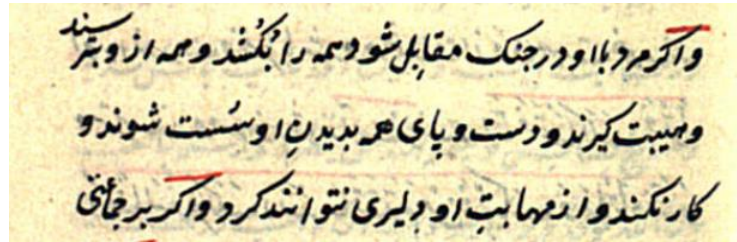 واکر مرد با او در جنک مقابل شود همه را بکُشد و همه از و بترسند
و هیبت کیرند و دست و پای همه بدیدنِ او سُست شوند و
کار نکنند و از مهابتِ او دلیری نتوانند کرد واکر بر جمٰاعتی